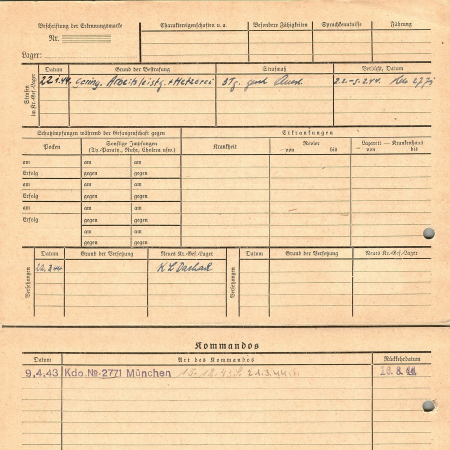 Beschriftung der Erkennungsmarke
Nr.
Lager:
Charaktereigenschaften u. a.
Besondere Fähigkeiten
Sprachkenntnisse
Führung
Strafen im Kr.-Gef.-Lager
Datum
Grund der Bestrafung
Strafmaß
Verbüßt, Datum
22.1.44. gering. Arbeitsleistg. + Hetzerei
3 Tg. gesch. Arrest
2.2.-5.2.44.
Schutzimpfungen während der Gefangenschaft gegen
Erkrankungen
Pocken
Sonstige Impfungen
(Ty.-Paraty., Ruhr, Cholera usw.)
Krankheit
Revier
von bis
Lazarett — Krankenhaus
von bis
am am am
Erfolg gegen gegen
am am am
Erfolg gegen gegen
am am am
Erfolg gegen gegen
am am
gegen gegen
Versetzungen
Datum
Grund der Versetzung
Neues Kr.-Gef.-Lager
Versetzungen
Datum
Grund der Versetzung
Neues Kr.-Gef.-Lager
K L Dachau
Kommandos
Datum
Art des Kommandos
Rückkehrdatum
9.4.43 Kdo.No. 2771 München